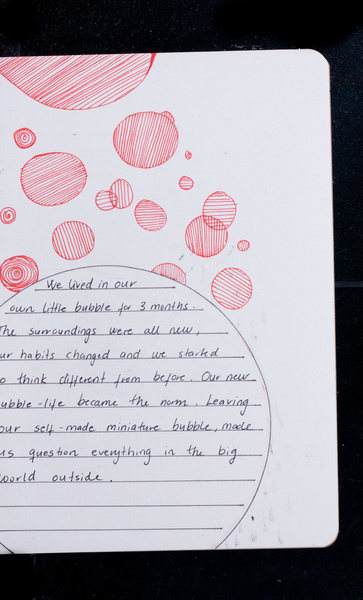 We lived in our
own little bubble for 3 months.
The surroundings were all new,
ur habits changed and we started
o think different from before. Our new
ubble-life became the norm. Leaving
our self-made miniature bubble, made
us question everything in the big
world outside.